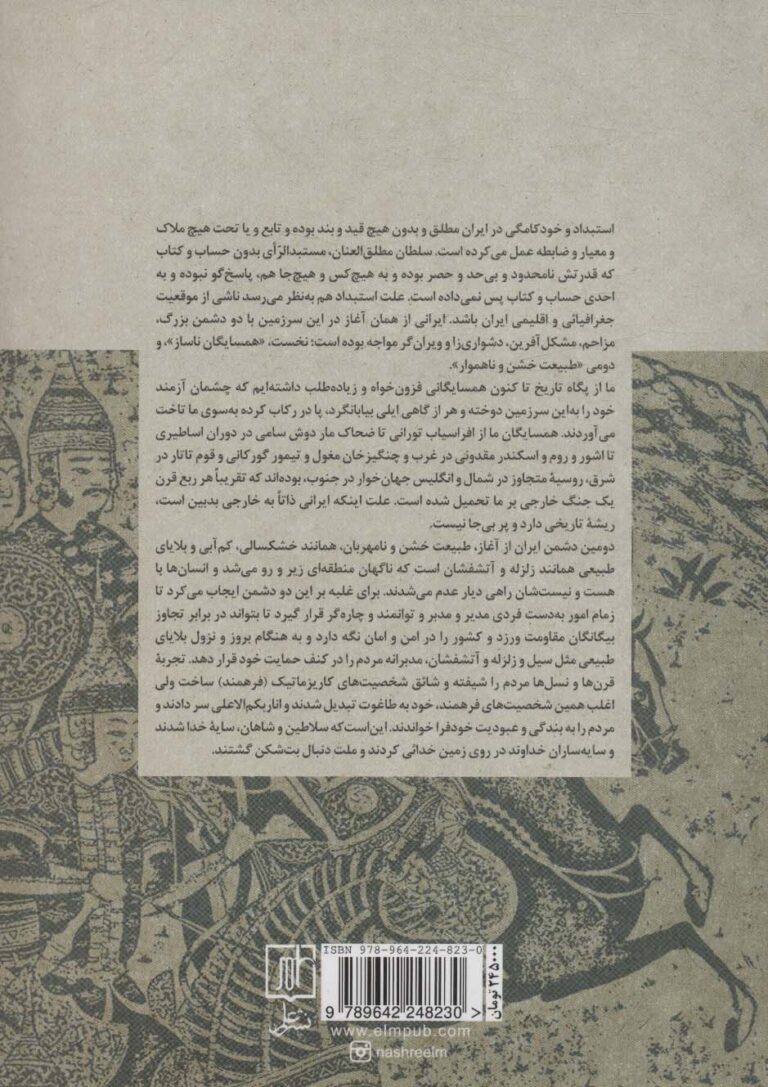 استبداد و خودکامگی در ایران مطلق و بدون هیچ قید و بند بوده و تابع و یا تحت هیچ ملاک
و معیار و ضابطه عمل می‌کرده است. سلطان مطلق‌العنان، مستبدالرّأی بدون حساب و کتاب
که قدرتش نامحدود و بی‌حد و حصر بوده و به هیچ‌کس و هیچ‌جا هم، پاسخ‌گو نبوده و به
احدی حساب و کتاب پس نمی‌داده است. علت استبداد هم به‌نظر می‌رسد ناشی از موقعیت
جغرافیائی و اقلیمی ایران باشد. ایرانی از همان آغاز در این سرزمین با دو دشمن بزرگ،
مزاحم، مشکل‌آفرین، دشواری‌زا و ویران‌گر مواجه بوده است؛ نخست، «همسایگان ناساز»، و
دومی «طبیعت خشن و ناهموار».
ما از پگاه تاریخ تا کنون همسایگانی فزون‌خواه و زیاده‌طلب داشته‌ایم که چشمان آزمند
خود را به‌این سرزمین دوخته و هر از گاهی ایلی بیابانگرد، پا در رکاب کرده به‌سوی ما تاخت
می‌آوردند. همسایگان ما از افراسیاب تورانی تا ضحاک مار دوش سامی در دوران اساطیری
تا اشور و روم و اسکندر مقدونی در غرب و چنگیزخان مغول و تیمور گورکانی و قوم تاتار در
شرق، روسیهٔ متجاوز در شمال و انگلیس جهان‌خوار در جنوب، بوده‌اند که تقریباً هر ربع قرن
یک جنگ خارجی بر ما تحمیل شده است. علت اینکه ایرانی ذاتاً به خارجی بدبین است،
ریشهٔ تاریخی دارد و پر بی‌جا نیست.
دومین دشمن ایران از آغاز، طبیعت خشن و نامهربان، همانند خشکسالی، کم‌آبی و بلایای
طبیعی همانند زلزله و آتشفشان است که ناگهان منطقه‌ای زیر و رو می‌شد و انسان‌ها با
هست و نیست‌شان راهی دیار عدم می‌شدند. برای غلبه بر این دو دشمن ایجاب می‌کرد تا
زمام امور به‌دست فردی مدیر و مدبر و توانمند و چاره‌گر قرار گیرد تا بتواند در برابر تجاوز
بیگانگان مقاومت ورزد و کشور را در امن و امان نگه دارد و به هنگام بروز و نزول بلایای
طبیعی مثل سیل و زلزله و آتشفشان، مدبرانه مردم را در کنف حمایت خود قرار دهد. تجربهٔ
قرن‌ها و نسل‌ها مردم را شیفته و شائق شخصیت‌های کاریزماتیک (فرهمند) ساخت ولی
اغلب همین شخصیت‌های فرهمند، خود به طاغوت تبدیل شدند و اناربکم‌الاعلی سر دادند و
مردم را به بندگی و عبودیت خودفرا خواندند. این‌است که سلاطین و شاهان، سایهٔ خدا شدند
و سایه‌ساران خداوند در روی زمین خدائی کردند و ملت دنبال بت‌شکن گشتند.
ISBN 978-964-224-823-0
9 789642 248230 >
۲۴۵۰۰۰ تومان
نشر علم
www.elmpub.com
nashreelm